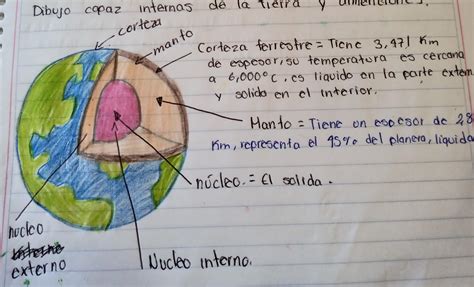 Dibujo capaz internas de la Tierra y dimenciones.
corteza
manto
Corteza terrestre = Tiene 3,471 Km
de espesor, su temperatura es cercana
a 6,000°C, es liquido en la parte extern
y solida en el interior.
Manto = Tiene un espesor de 28
Km, representa el 45% del planera, liquida
núcleo. = El solida.
nucleo
externo
Nucleo interno.